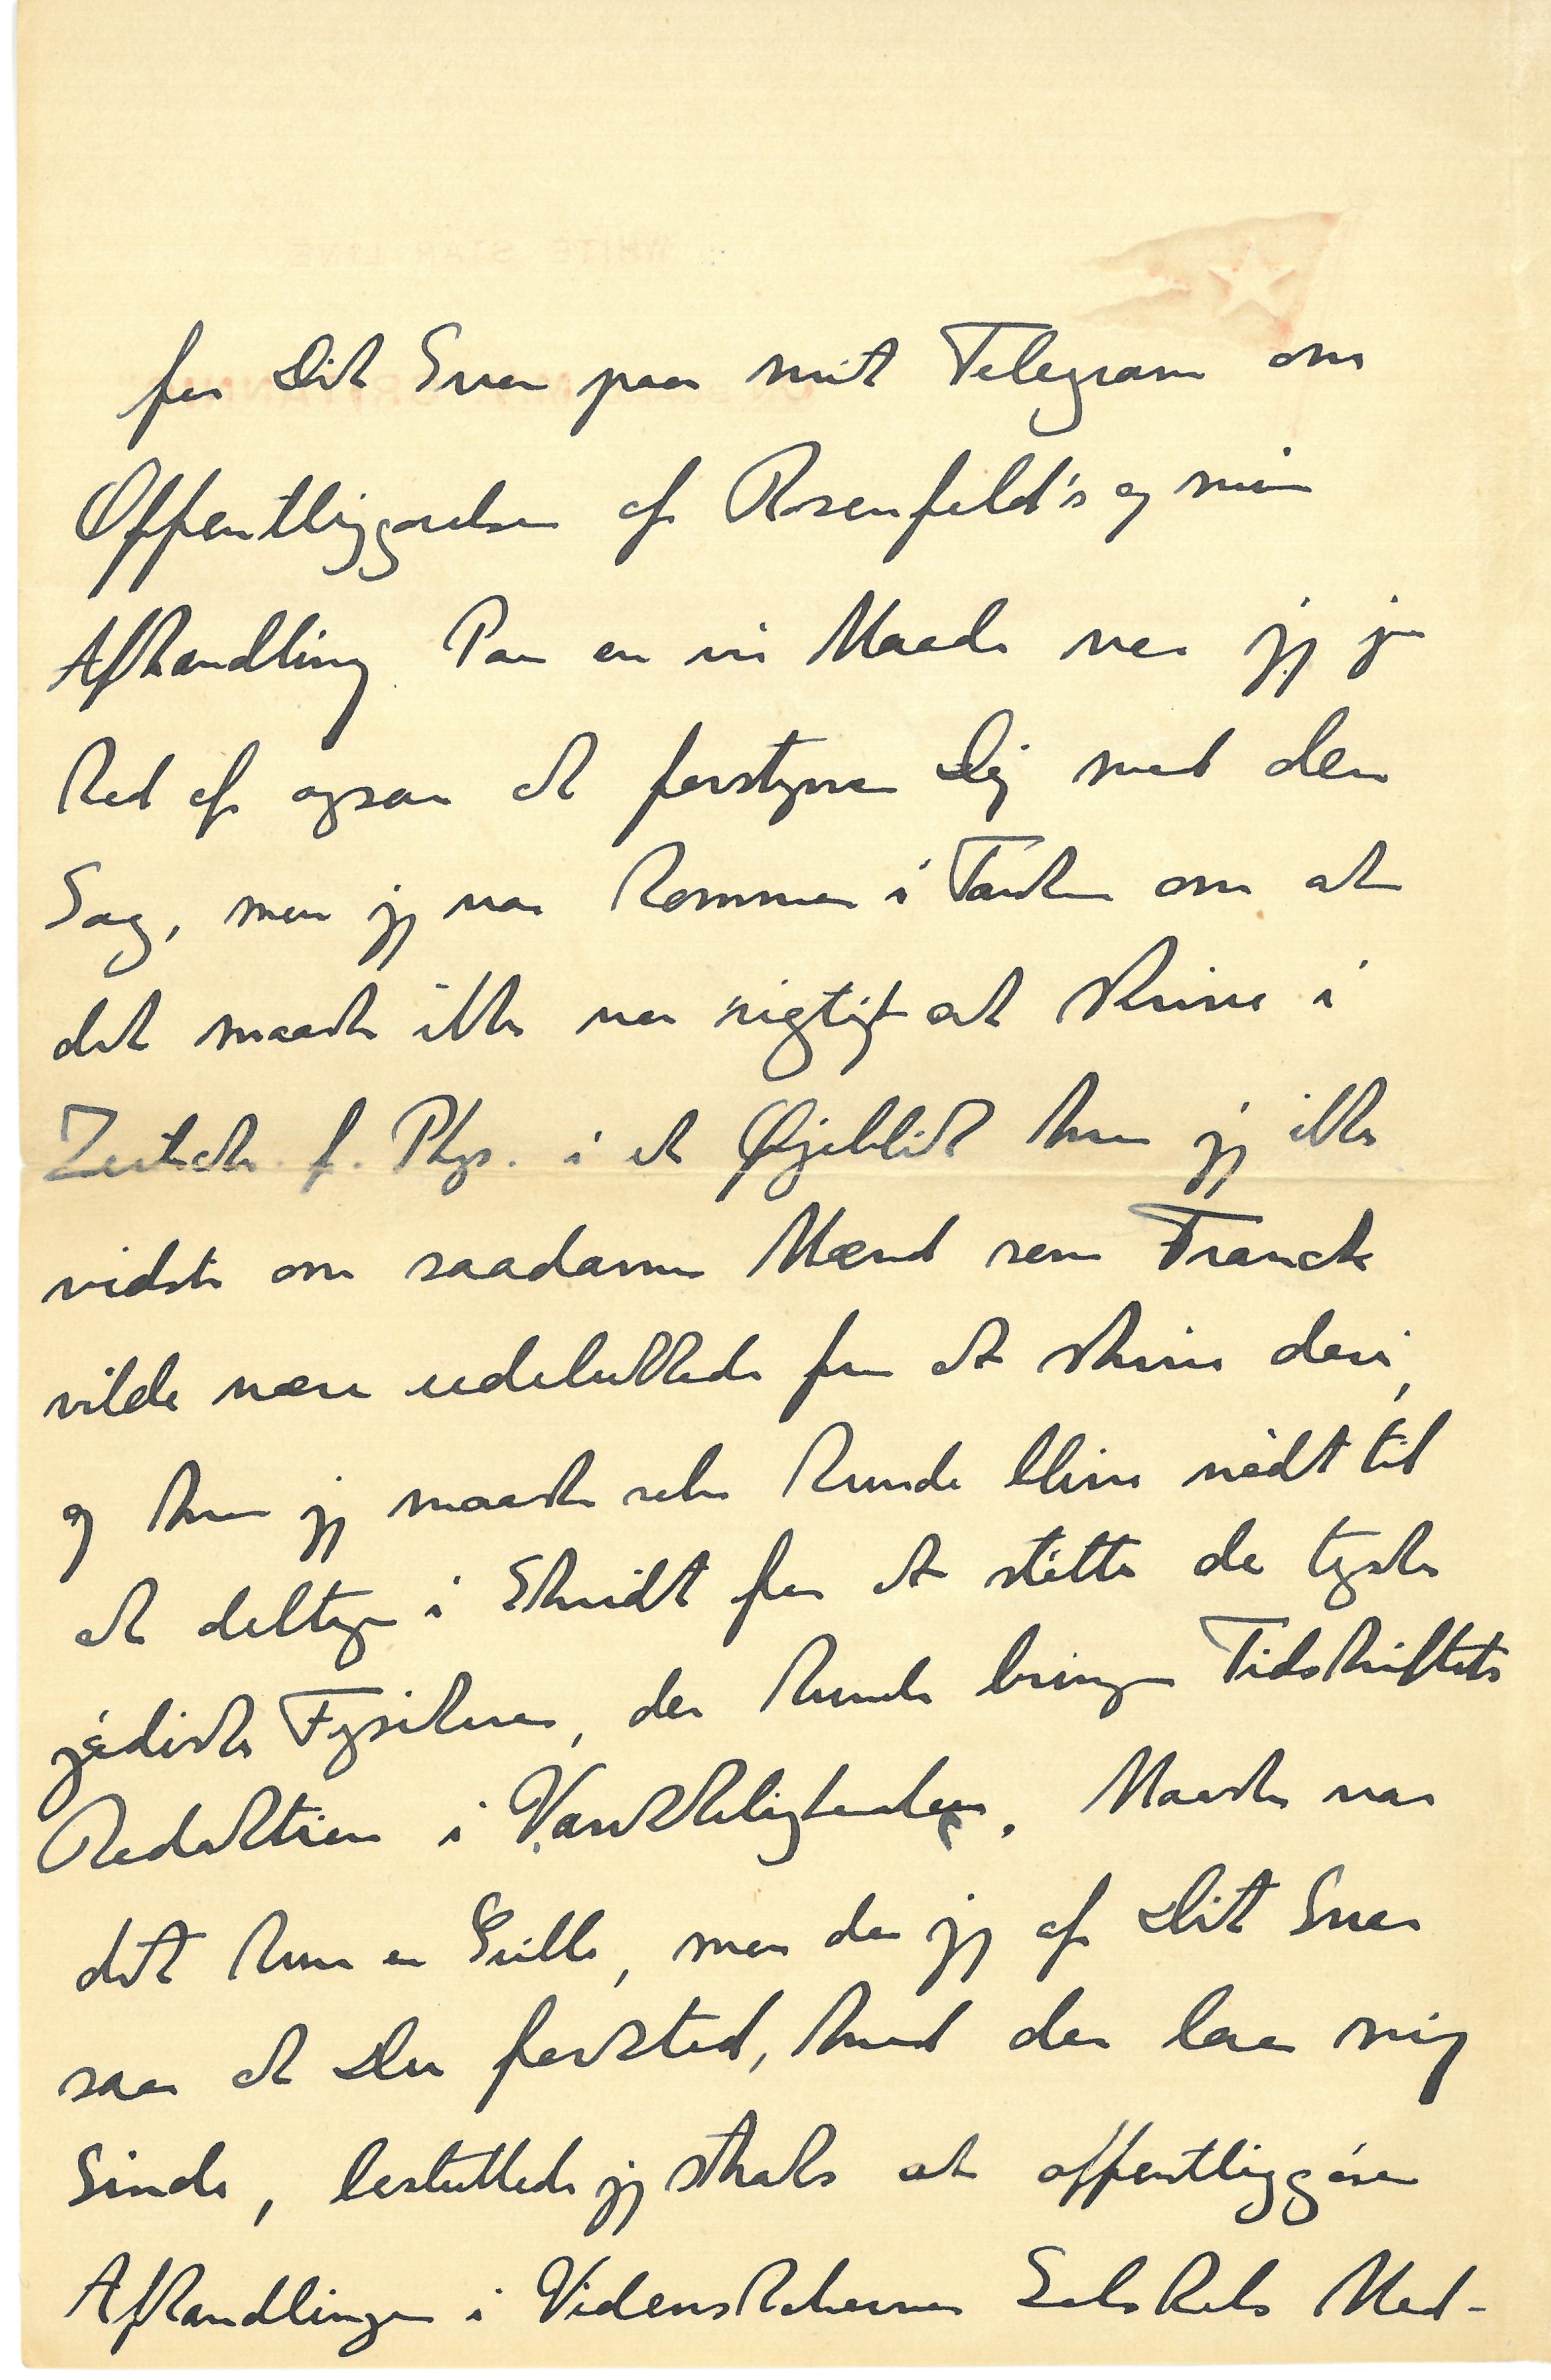 for Dit Svar paa mit Telegram om
Offentliggørelsen af Rosenfeld's og min
Afhandling. Paa en vis Maade var jeg jo
ked af ogsaa at forstyrre Dig med den
Sag, men jeg var kommen i Tanker om at
det maaske ikke var rigtigt at skrive i
Zeitschr. f. Phys. i et Øjeblik hvor jeg ikke
vidste om saadanne Mænd som Franck
vilde være udelukkede fra at skrive deri,
og hvor jeg maaske selv kunde blive nødt til
at deltage i Skridt for at støtte de tyske
jødiske Fysikere, der kunde bringe Tidskriftets
Redaktion i Vanskeligheder. Maaske var
det kun en Grille, men da jeg af Dit Svar
saa at Du forstod, hvad der laa mig
Sinde, besluttede jeg straks at offentliggøre
Afhandlingen i Videnskabernes Selskabs Med-
WHITE STAR LINE